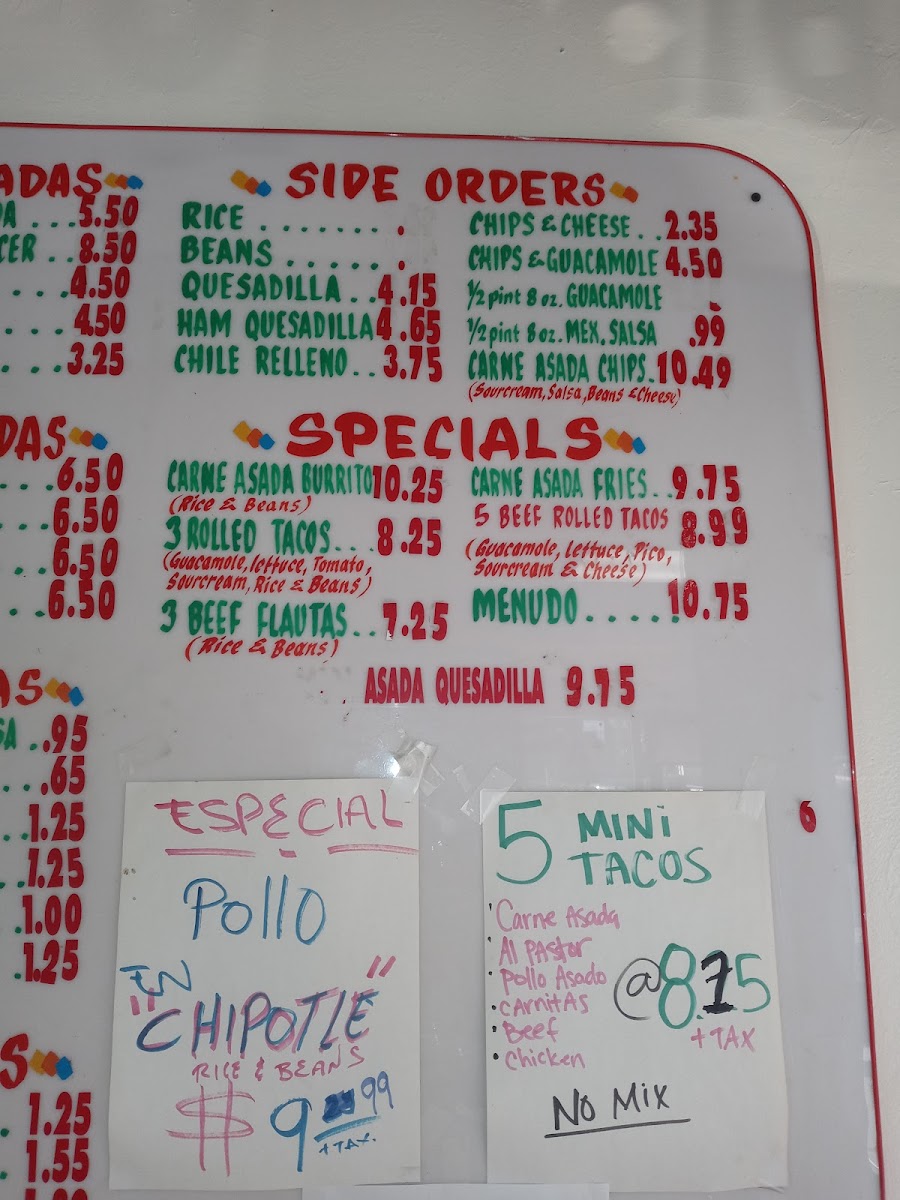 ADAS
A . . . 5.50
CER . . 8.50
. . . . 4.50
. . . . 4.50
. . . . 3.25
DAS
. . . 6.50
. . . 6.50
. . . 6.50
. . . 6.50
AS
SA . . .95
. . .65
. . 1.25
. . 1.25
1.00
. 1.25
S
1.25
1.55
SIDE ORDERS
RICE . . . . . . . .
BEANS . . . . . . .
QUESADILLA . . 4.15
HAM QUESADILLA 4.65
CHILE RELLENO . . 3.75
CHIPS & CHEESE . . 2.35
CHIPS & GUACAMOLE 4.50
1/2 pint 8 oz. GUACAMOLE
1/2 pint 8 oz. MEX. SALSA .99
CARNE ASADA CHIPS . 10.49
(Sourcream, Salsa, Beans & Cheese)
SPECIALS
CARNE ASADA BURRITO 10.25
(Rice & Beans)
3 ROLLED TACOS . . . 8.25
(Guacamole, lettuce, Tomato,
Sourcream, Rice & Beans)
3 BEEF FLAUTAS . . 7.25
(Rice & Beans)
CARNE ASADA FRIES . . 9.75
5 BEEF ROLLED TACOS 8.99
(Guacamole, Lettuce, Pico,
Sourcream & Cheese)
MENUDO . . . . . 10.75
ASADA QUESADILLA 9.75
ESPECIAL
Pollo
IN
"CHIPOTLE"
RICE & BEANS
$ 9 99
+ TAX.
5 MINI
TACOS
• Carne Asada
• Al PAstor
• Pollo Asado
• CArnitAs
• Beef
• Chicken
@ 8.75
+ TAX
NO MIX
6